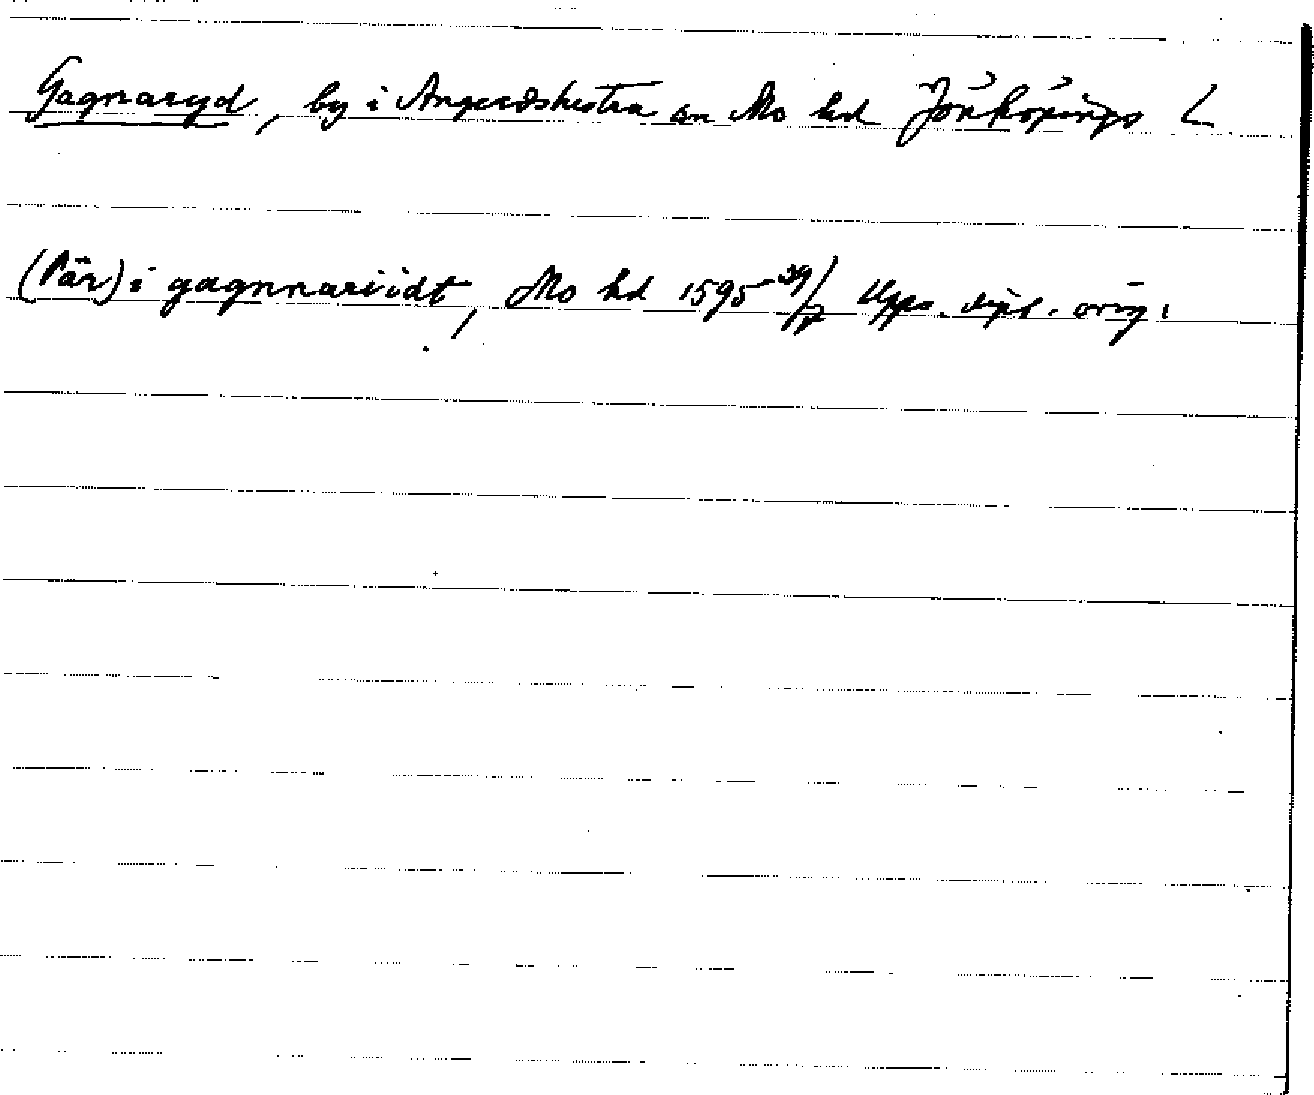 Gagnaryd, by i Angerdshestra sn Mo hd Jönköpings L
(Pär) i gagnnariidt, Mo hd 1595 29/7 Upps. dipl. orig.